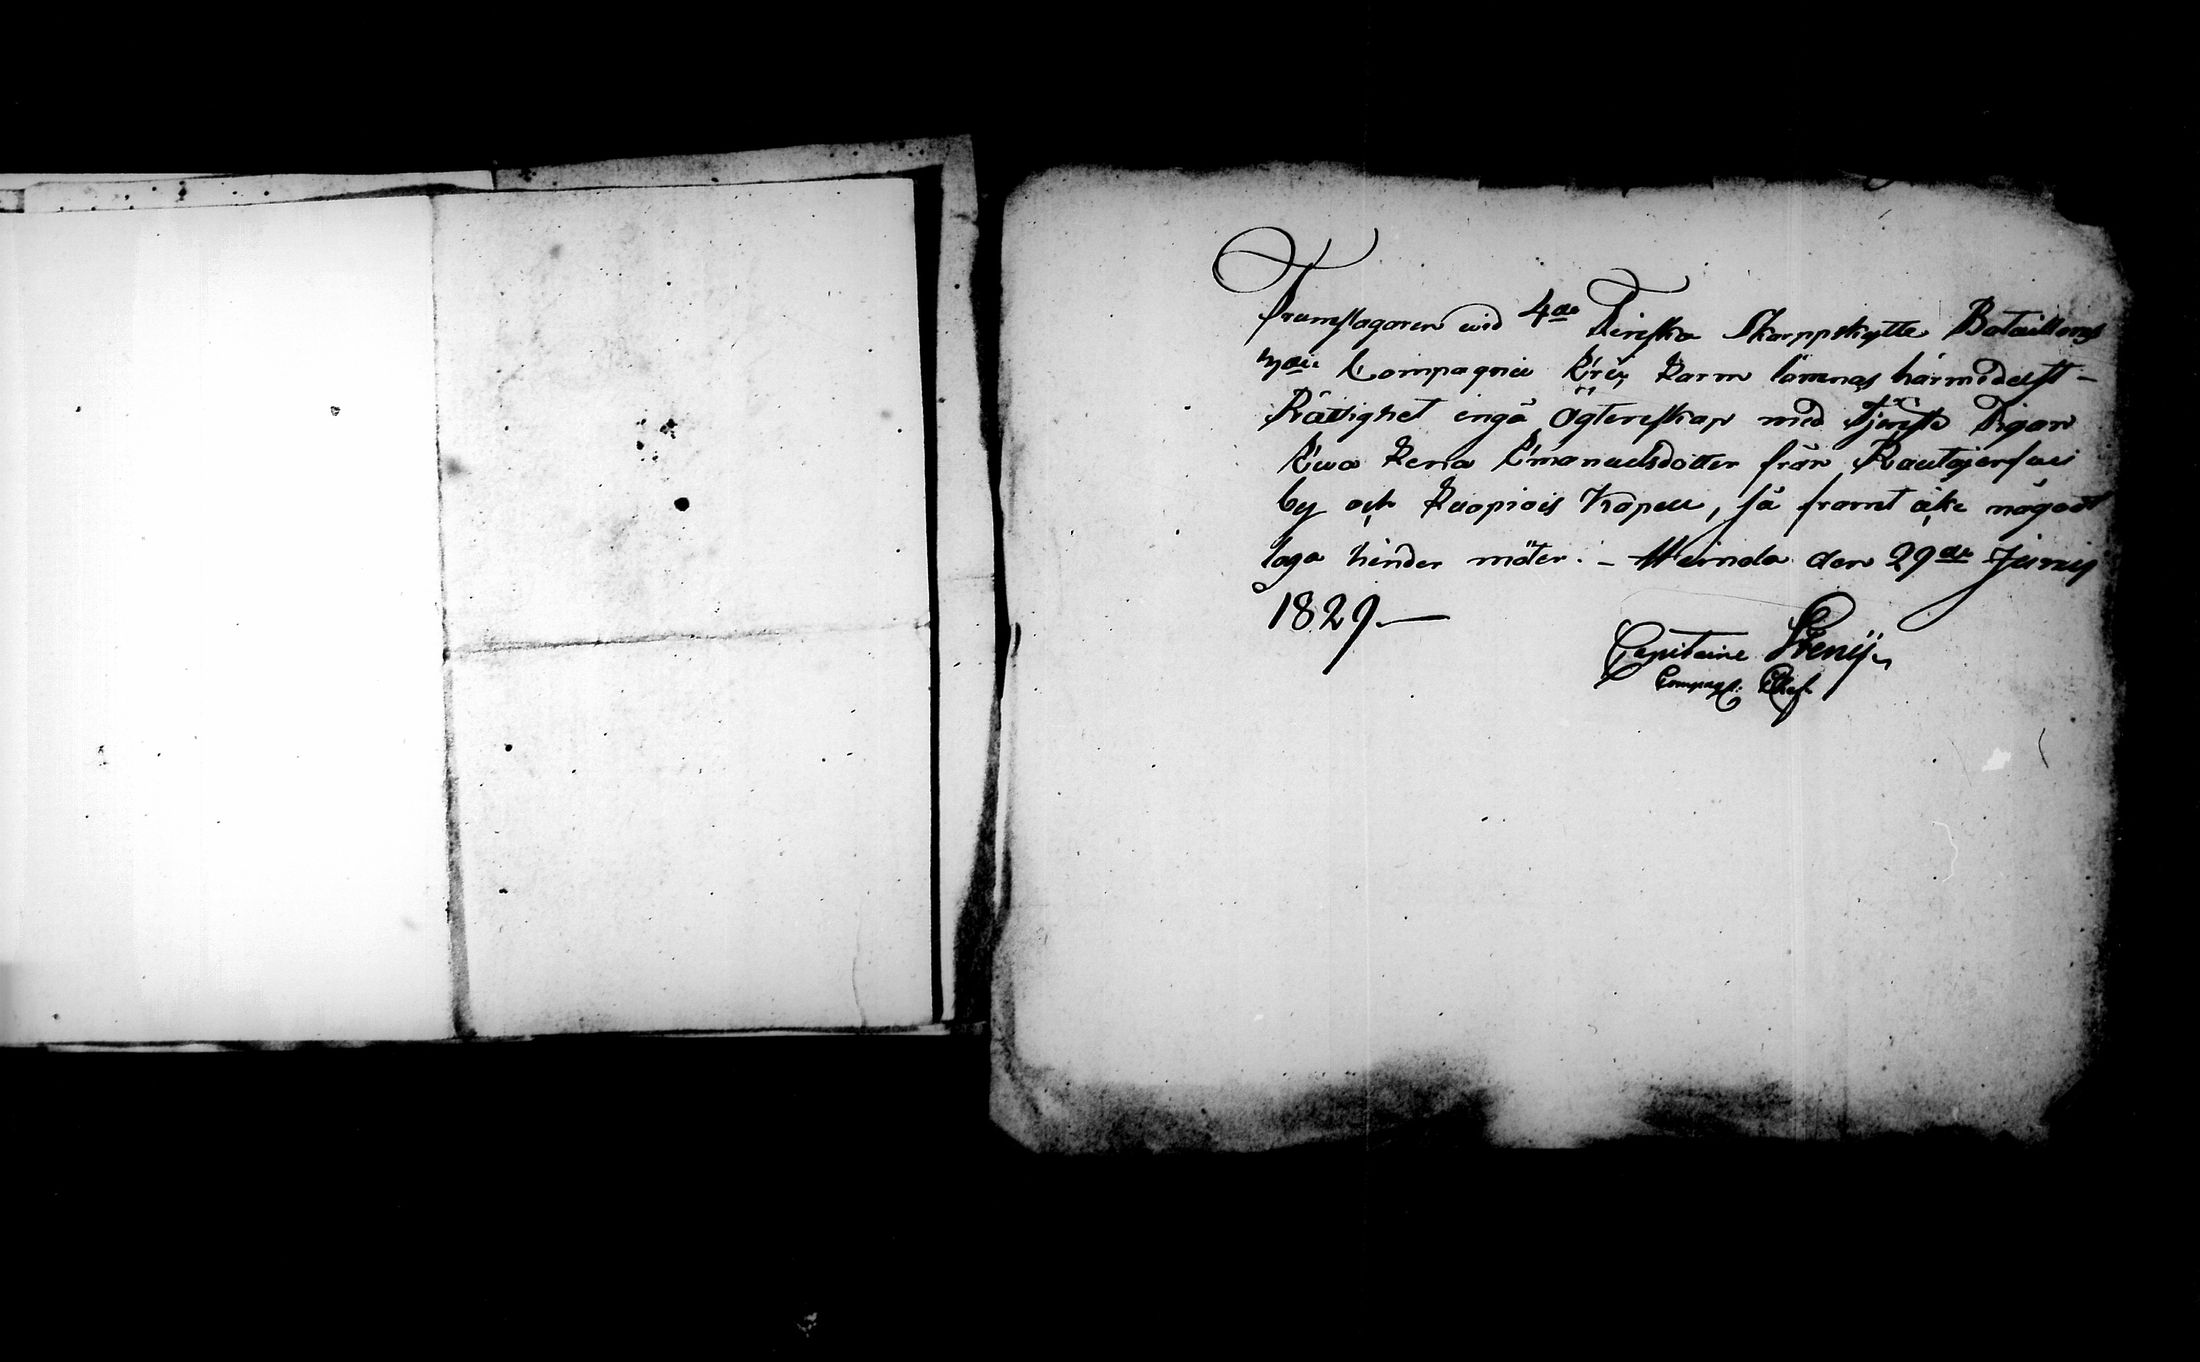 Trumslagaren wid 4de Finska Skarppskytte Bataillons
Compagnie Eric Karm lämnas härmedelst -
Rättighet ingå Ägtenskap med Tjenste Pigan
Ewa Lena Emanuelsdotter från Rautajerfwi
by och Kuopiois Kapell, så framt icke något
laga hinder möter. - Heinola den 29de Junij
1829. -
Capitaine
Compag. Chef